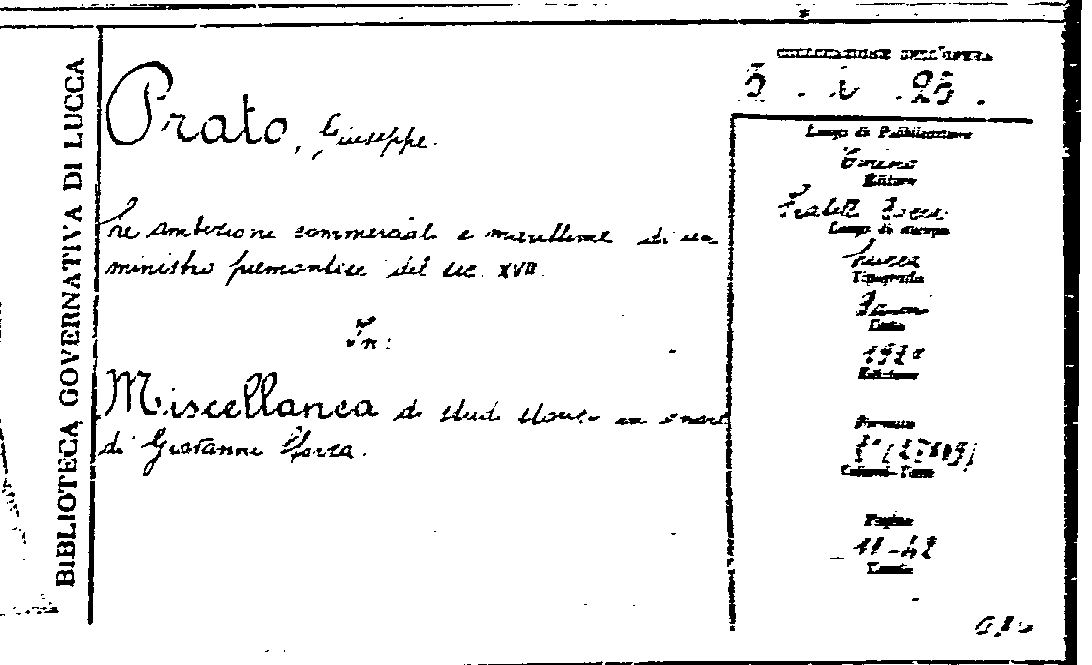 BIBLIOTECA GOVERNATIVA DI LUCCA
COLLOCAZIONE DELL'OPERA
Prato, Giuseppe.
Le ambizioni commerciali e marittime di un
ministro piemontese del sec. XVII.
In:
Miscellanea di studi storici in onore
di Giovanni Sforza.
Luogo di Pubblicazione
Torino
Editore
Fratelli Bocca
Luogo di stampa
Lucca
Tipografia
Data
Edizione
Formato
Volumi-Tomo
Pagine
11-42
Tavole